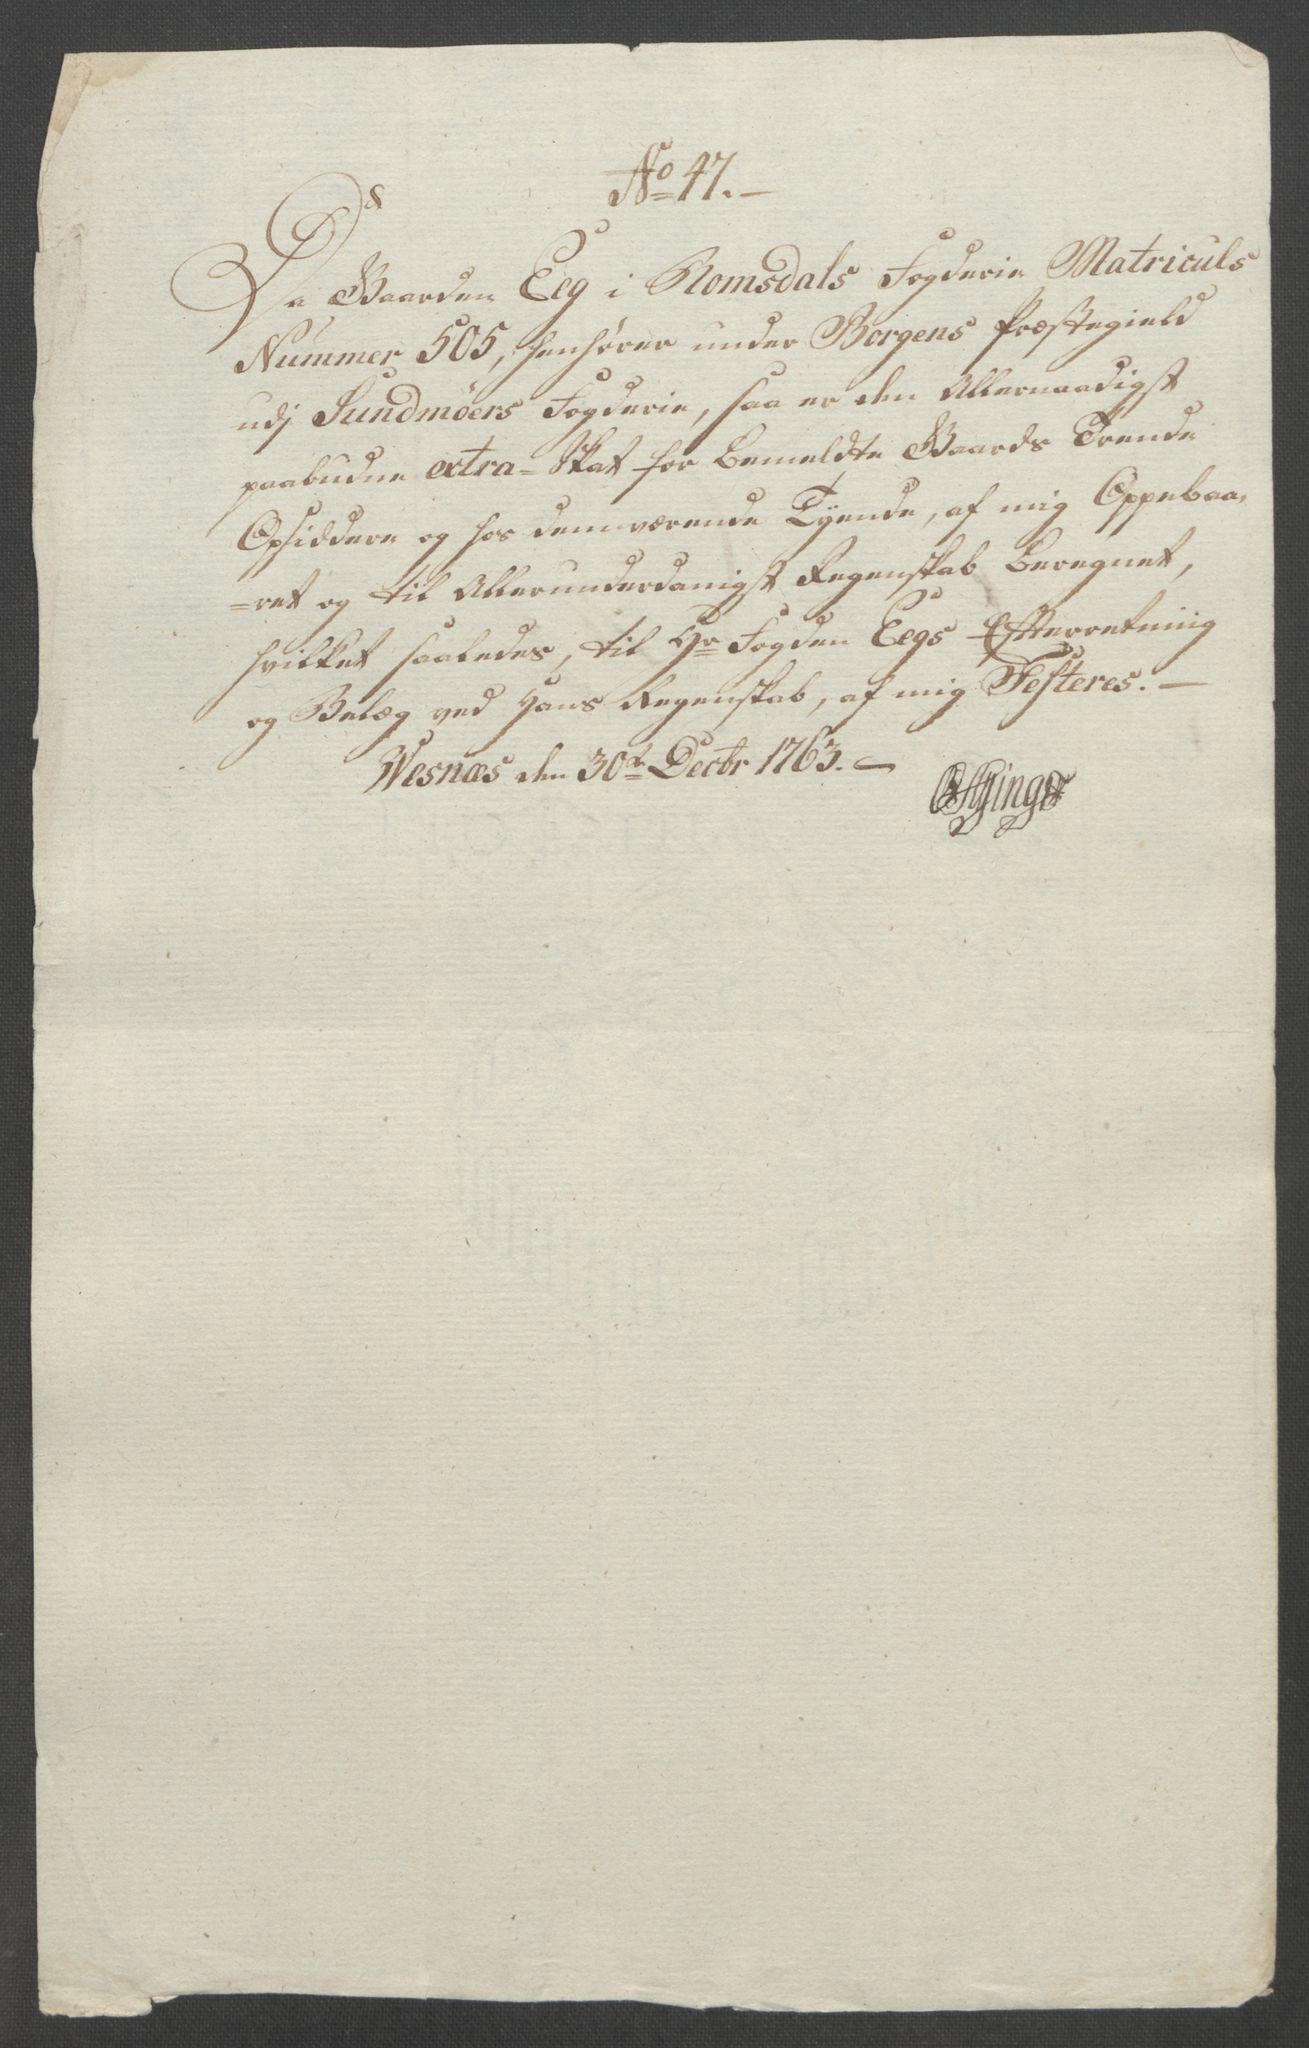 No 47. –
Da Gaarden Eeg i Romsdals Fogderie Matriculs
Nummer 505, henhører under Borgens Præstegield
udj Sundmöers Fogderie, saa er den Allernaadigst
paabudne extra-Skat for bemeldte Gaards Trende
Opsiddere og hos dem værende Tÿende, af mig Oppebaa-
=ret og til Allerunderdanigst Regenskab beregnet,
hvilket saaledes, til Hr Fogden Eegs Efterretning
og Belæg ved Hans Regenskab, af mig Testeres. –
Wesnæs den 30te Decbr 1763. –